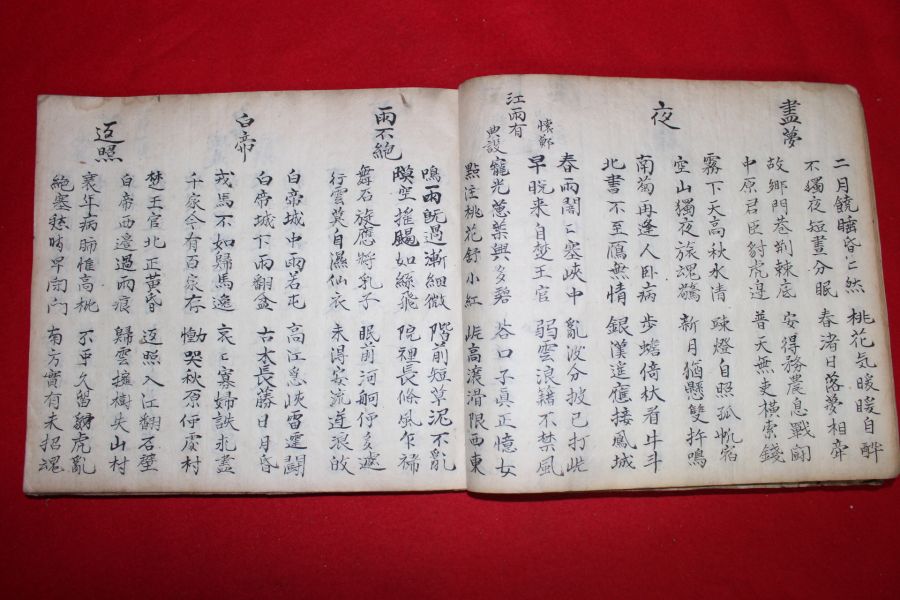 盡夢
二月饒睡昏〻然
不獨夜短晝分眠
桃花気暖暖自醉
春渚日落夢相牽
故鄉門巷荊棘底
中原君臣豺虎邊
安得務農息戰鬪
普天無吏橫索錢
夜
霧下天高秋水清
空山獨夜旅魂驚
踈燈自照孤帆宿
新月猶懸雙杵鳴
南菊再逢人卧病
北書不至鴈無情
步蟾倚杖看牛斗
銀漢遙應接鳳城
江雨有懷鄭典設
春雨闇〻塞峽中
早晚来自楚王宮
亂波分披已打岸
弱雲浪籍不禁風
寵光蕙葉與多碧
點注桃花舒小紅
谷口子真正憶女
岸高瀼滑限西東
雨不絕
鳴雨既過漸細微
映空搖颺如絲飛
階前短草泥不亂
院裡長條風乍稀
舞石旋應將乳子
行雲莫自濕仙衣
眼前河舸何多遽
未得安流逆浪皈
白帝
白帝城中雨若屯
白帝城下雨翻盆
高江急峽雷霆鬪
古木長藤日月昏
戎馬不如歸馬逸
千家今有百家存
哀〻寡婦誅求盡
慟哭秋原何處村
返照
楚王宮北正黃昏
白帝西邊過雨痕
返照入江翻石壁
歸雲擁樹失山村
衰年病肺惟高枕
絕塞愁時早閉門
不可久留豺虎亂
南方實有未招魂